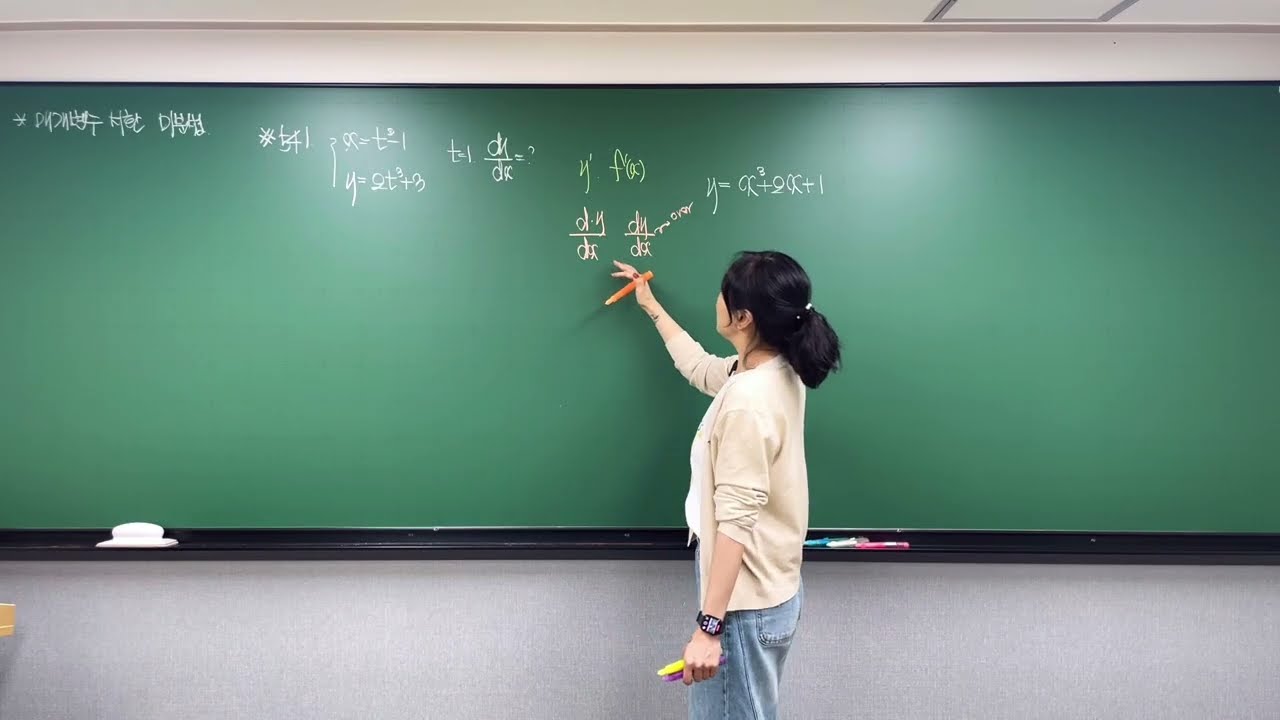 ※ 매개변수 저한 미분법
※ 보기1. x = t²-1
y = 2t³+3
t=1 dy/dx = ?
y' f'(x)
d·y/dx dy/dx over
y = x³+2x+1